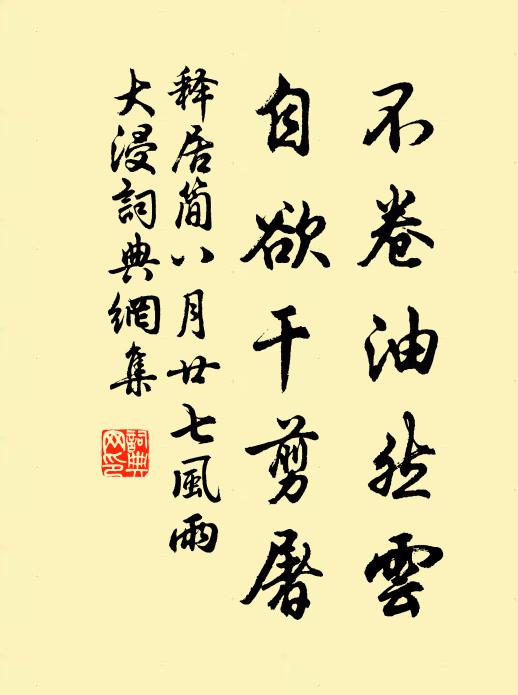 不卷油然雲
自欲干剪屠
释居简八月廿七風雨
大浸詞典網集
詞典
网印